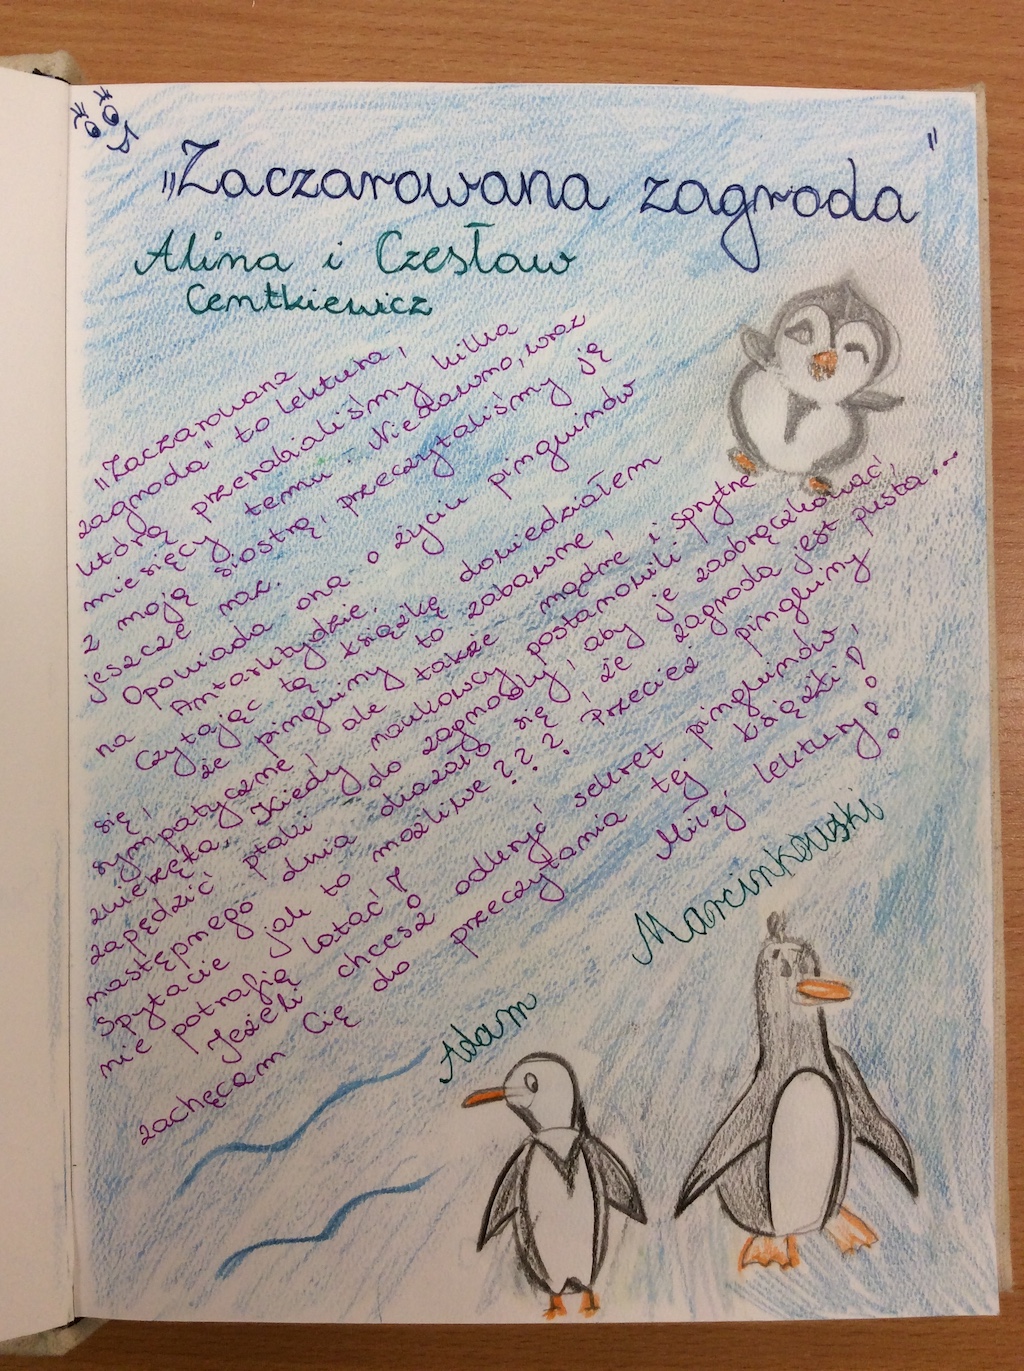 „Zaczarowana zagroda"
Alina i Czesław
Centkiewicz
„Zaczarowana
zagroda" to lektura,
którą przerabialiśmy kilka
miesięcy temu. Niedawno, wraz
z moją siostrą, przeczytaliśmy ją
jeszcze raz.
Opowiada ona o życiu pingwinów
na Antarktydzie.
Czytając tą książkę dowiedziałem
się, że pingwiny to zabawne,
sympatyczne, ale także mądre i sprytne
zwierzęta. Kiedy naukowcy postanowili
zapędzić ptaki do zagrody, aby je zaobrączkować,
następnego dnia okazało się, że zagroda jest pusta...
Spytacie jak to możliwe??? Przecież pingwiny
nie potrafią latać!
Jeżeli chcesz odkryć sekret pingwinów,
zachęcam Cię do przeczytania tej książki!
Miłej lektury!
Adam Marcinkowski